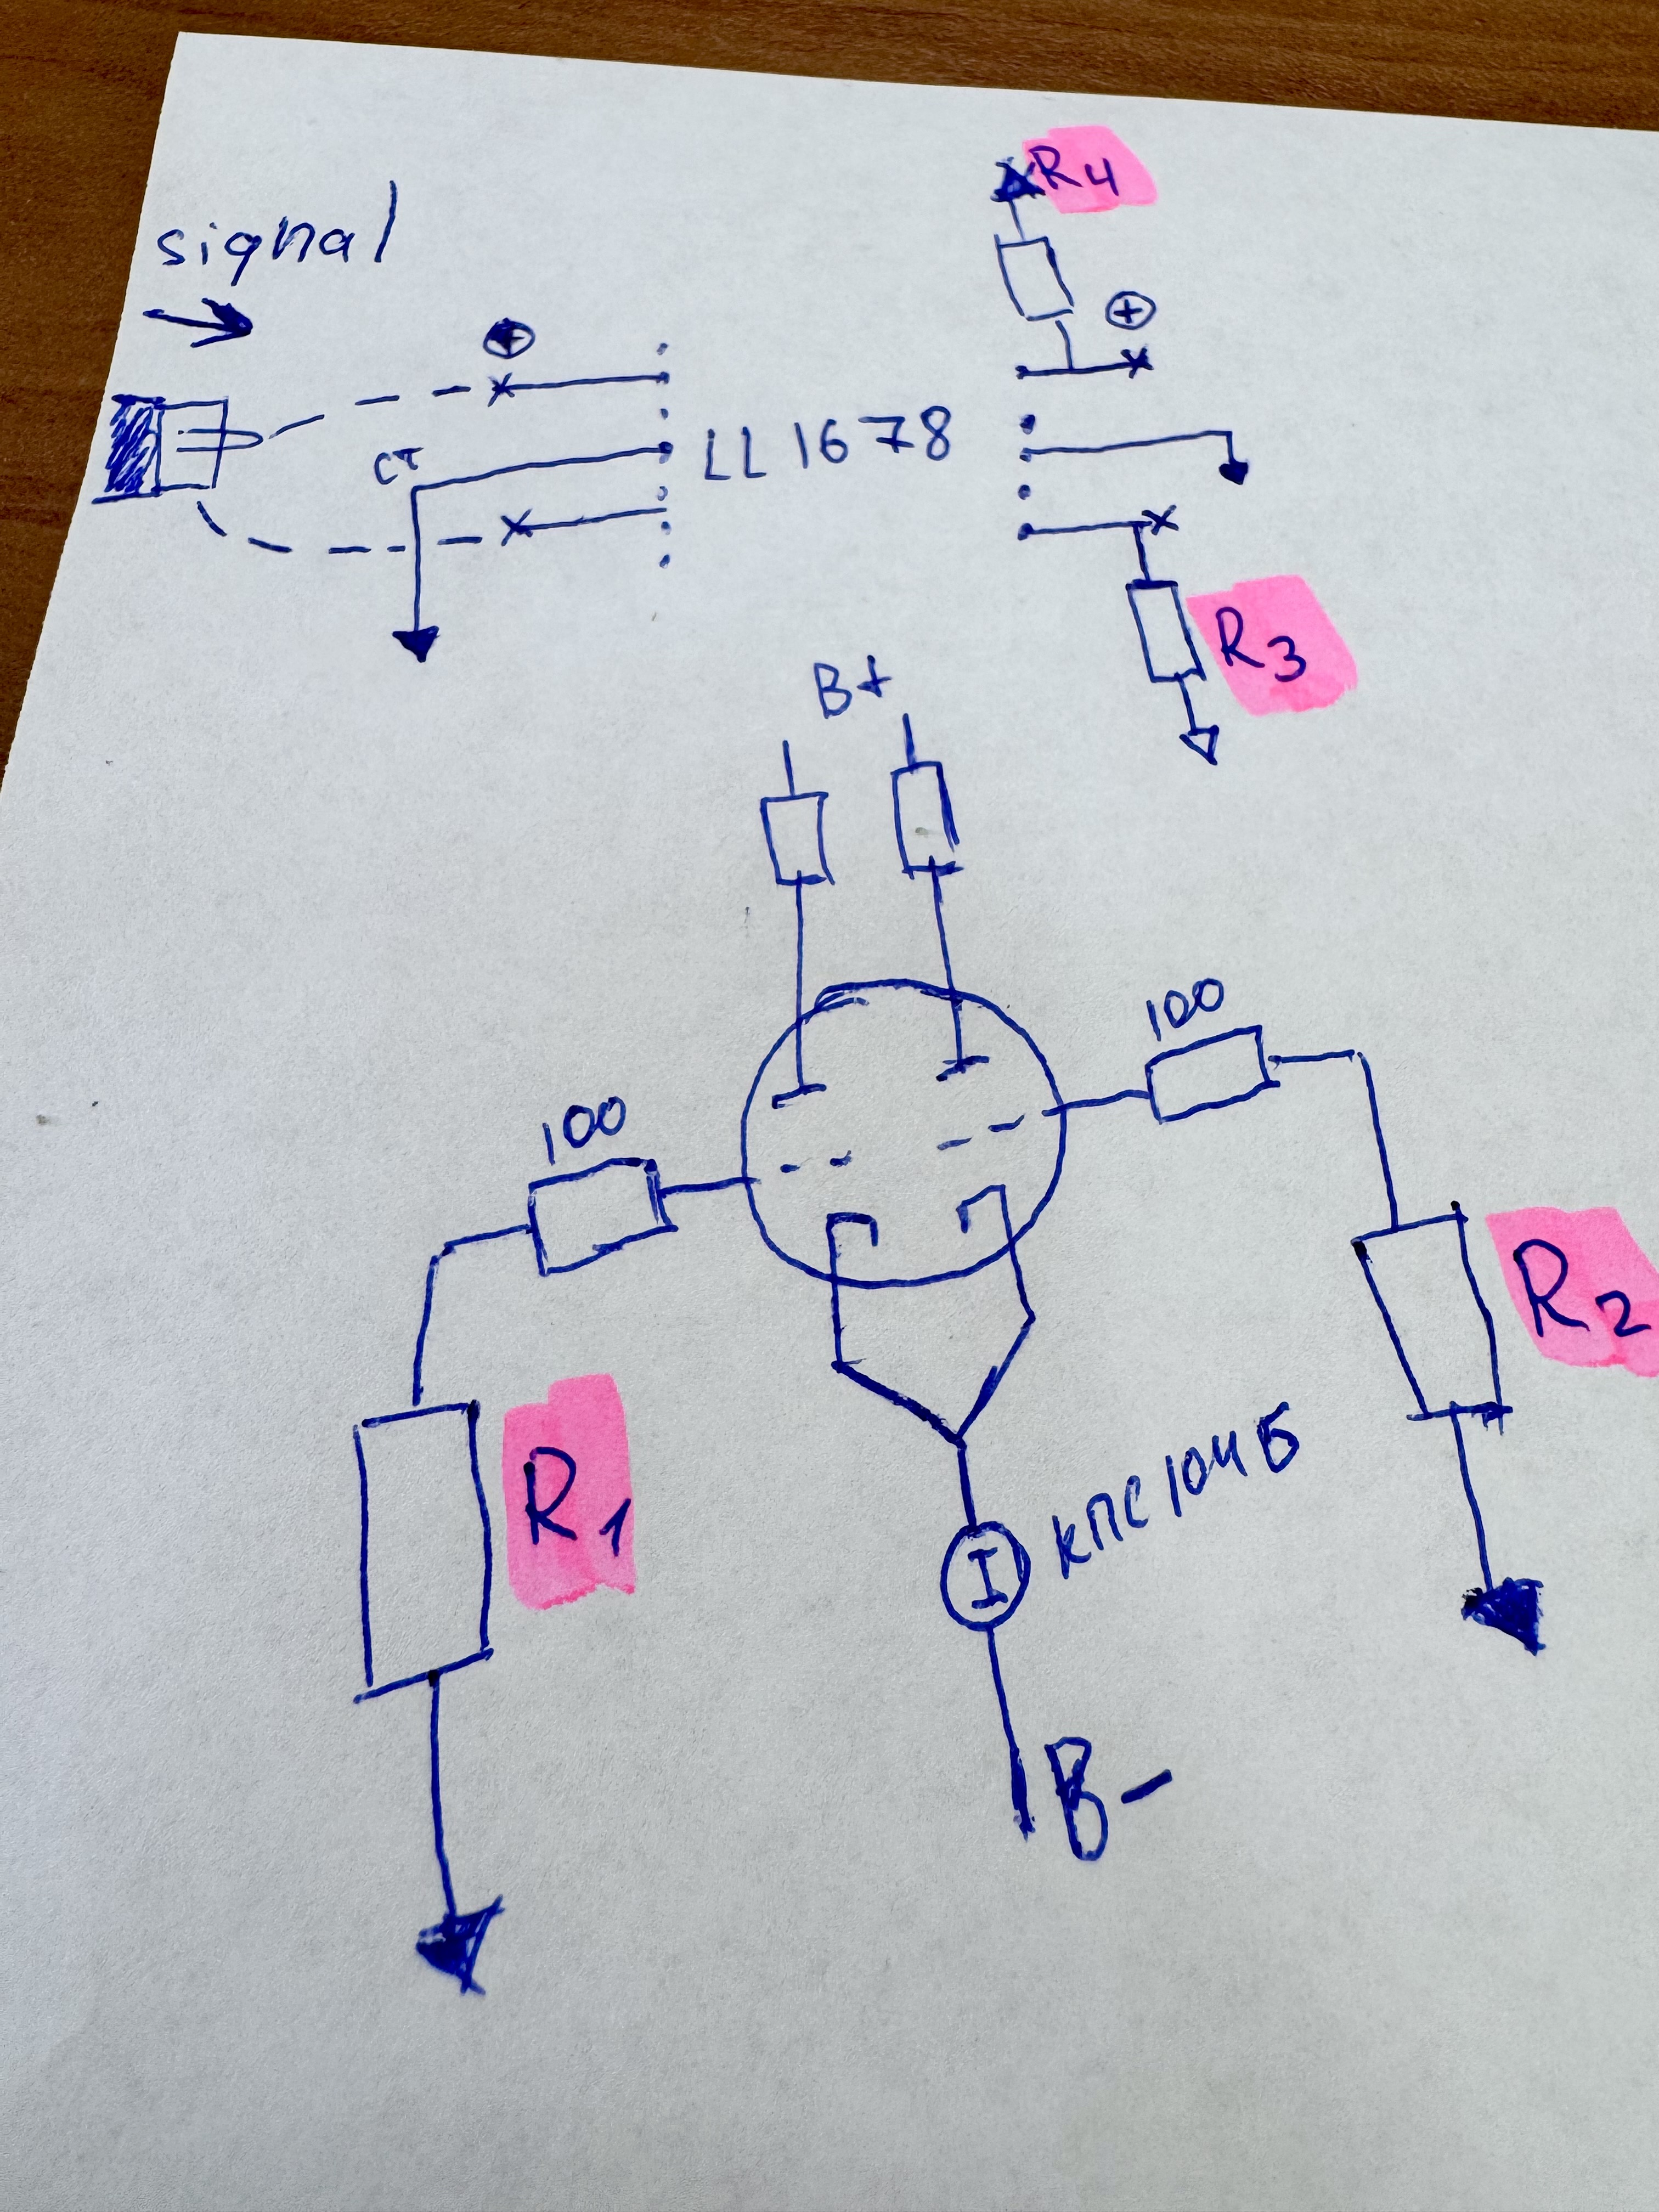 R4
signal
+
+
CT
LL1678
R3
B+
100
100
R2
R1
КПС104Б
I
B-